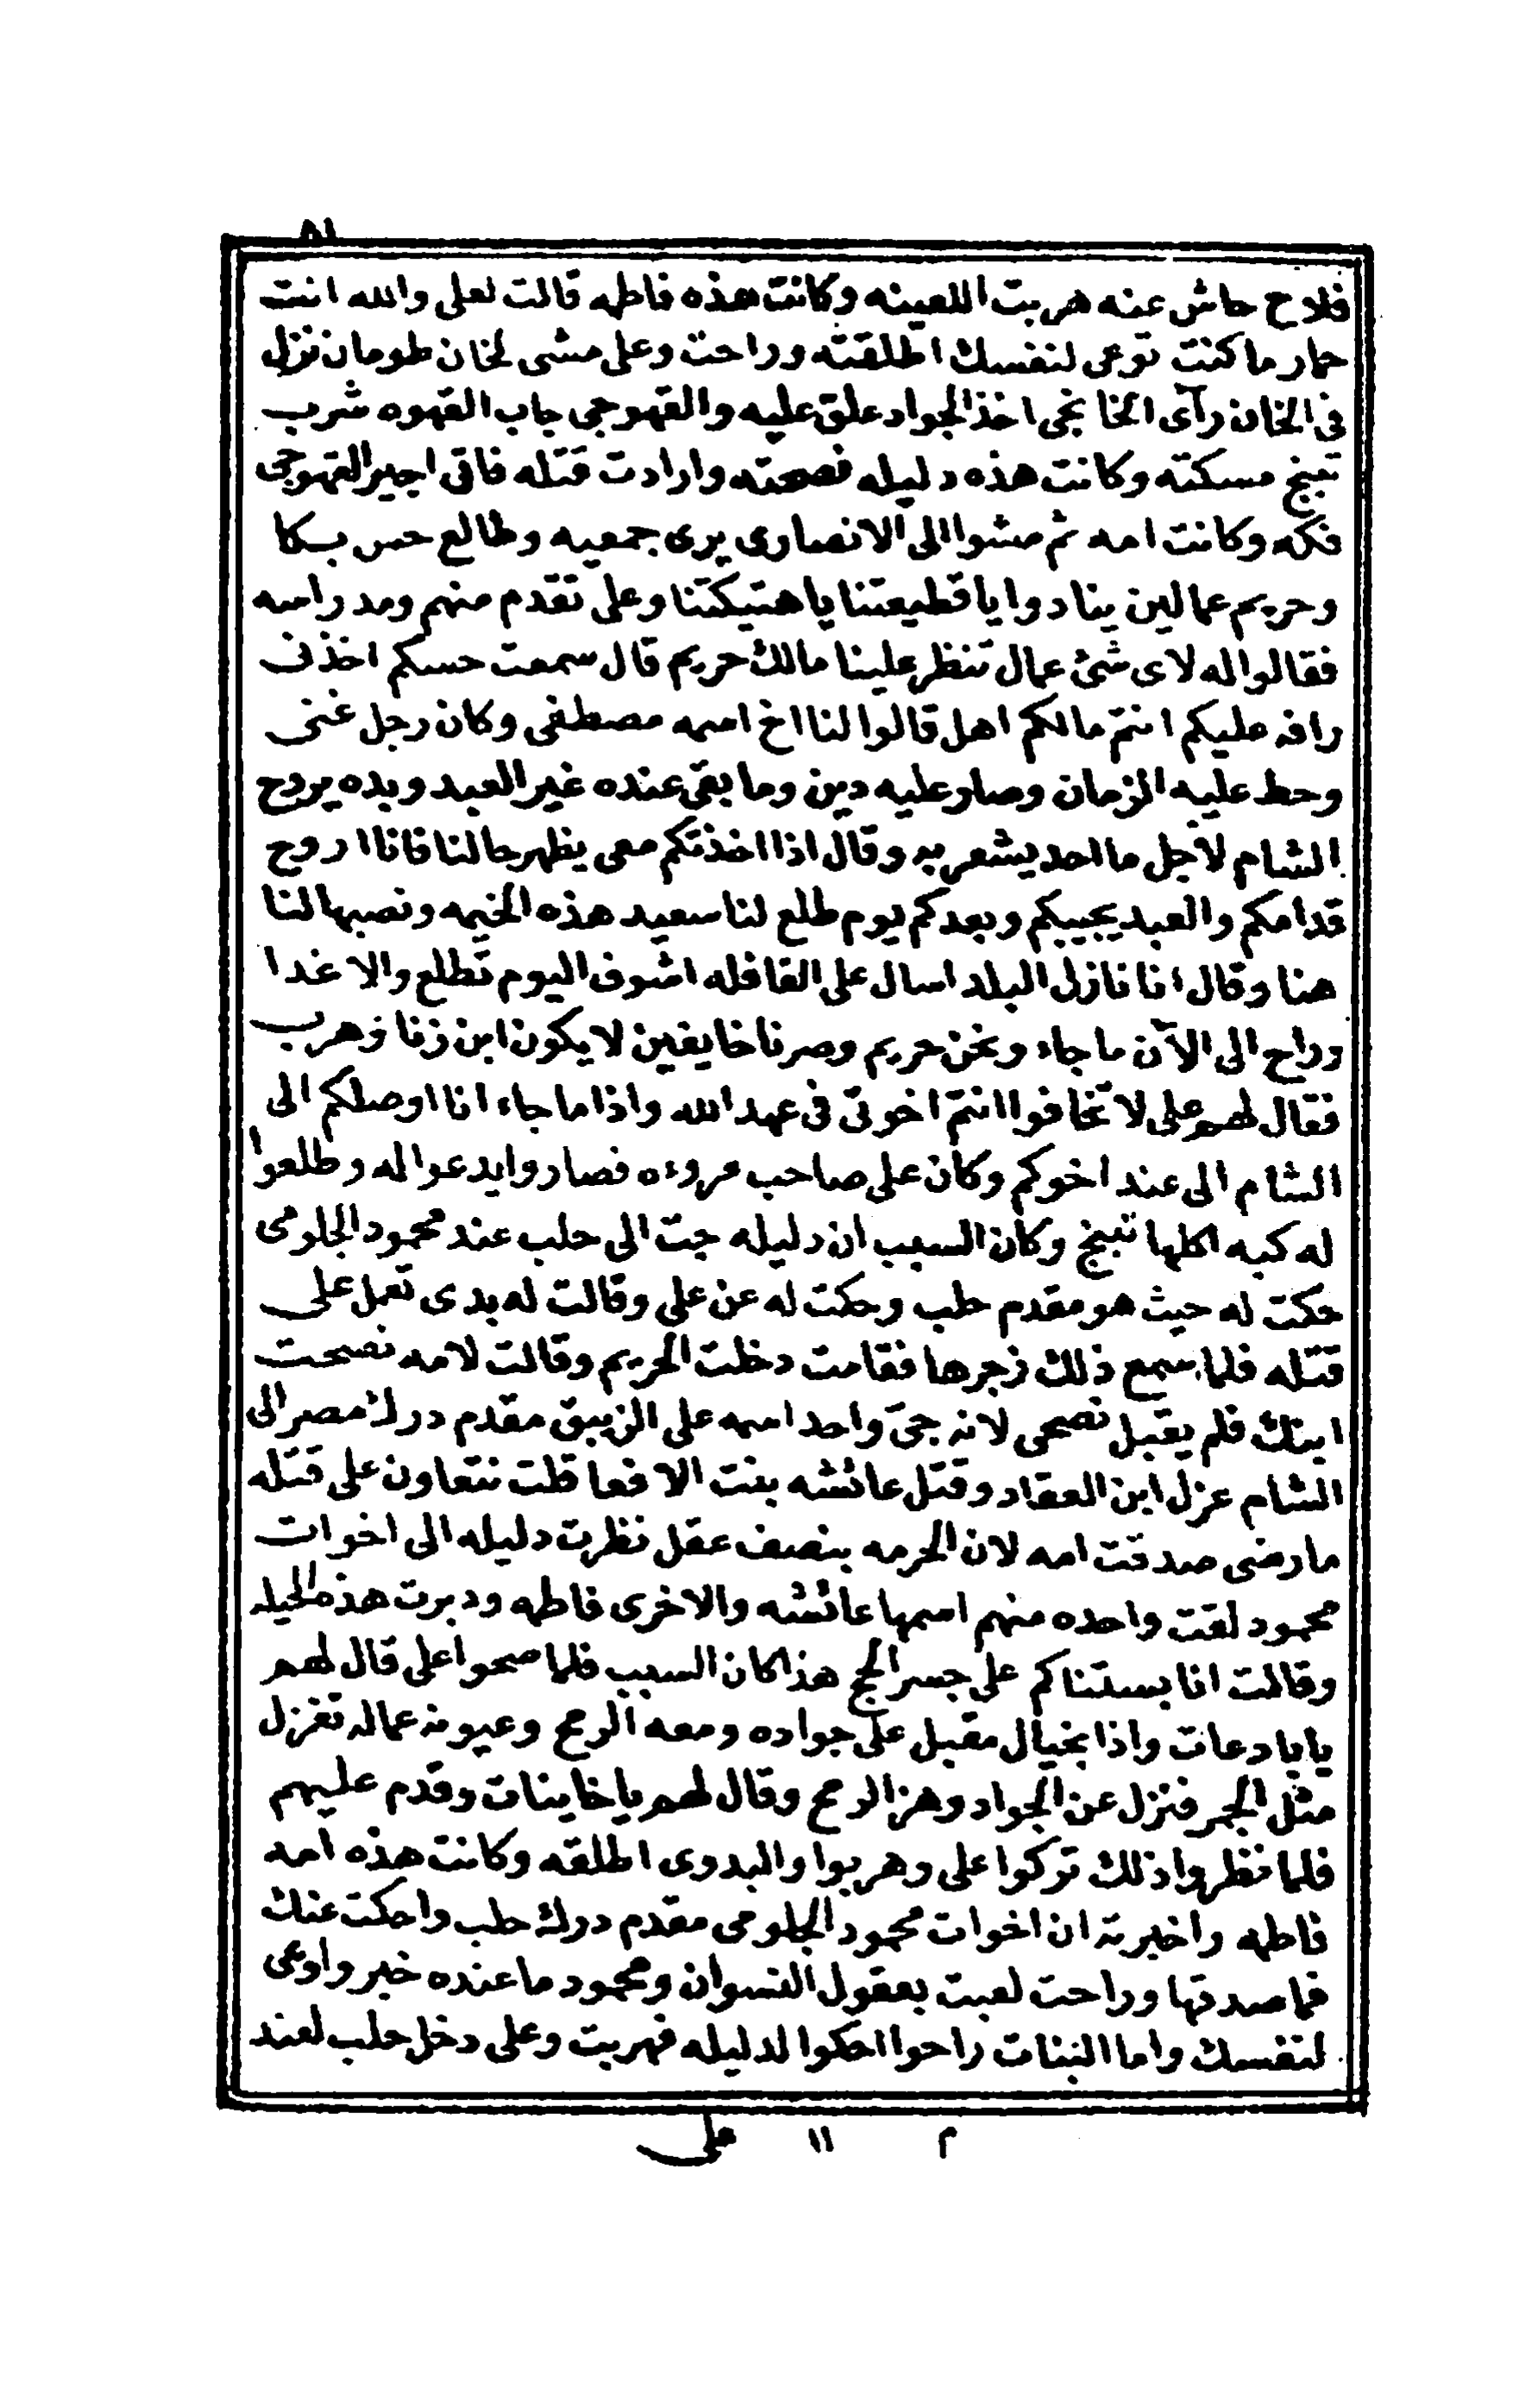 ٨١
فلاح حاش عنه هربت اللعينه وكانت هذه فاطمه قالت لعلى والله انت
حمار ما كنت توعى لنفسك اطلقته وراحت وعلى مشى لخان طومان نزل
فى الخان رآى الخانجى اخذ الجواد علق عليه والقهوجى جاب القهوه شرب
تبنج مسكته وكانت هذه دليله فصحته وارادت قتله فاتى اجير القهوجى
فكه وكانت امه ثم مشوا الى الانصارى يرى جمعيه وطالع حس بكا
وحريم عمالين ينادوا يا قطيعتنا يا هتيكتنا وعلى تقدم منهم ومد راسه
فقالوا له لاى شئ عمال تنظر علينا مالك حريم قال سمعت حسكم اخذنى
رافه عليكم انتم مالكم اهل قالوا لنا اخ اسمه مصطفى وكان رجل غنى
وحط عليه الزمان وصار عليه دين وما بقى عنده غير العبد وبده يروح
الشام لاجل ما احد يشعر به وقال اذا اخذتكم معى يظهر حالنا فانا اروح
قدامكم والعبد يجيبكم وبعدكم يوم طلع لنا سعيد هذه الخيمه ونصبها لنا
هنا وقال انا نازل البلد اسال على القافله اشوف اليوم تطلع والا غدا
وراح الى الآن ما جاء ونحن حريم وصرنا خايفين لا يكون ابن زنا وهرب
فقال لهم على لا تخافوا انتم اخوتى فى عهد الله واذا ما جاء انا اوصلكم الى
الشام الى عند اخوكم وكان على صاحب مروءه فصاروا يدعوا له وطلعوا
له كبه اكلها تبنج وكان السبب ان دليله جت الى حلب عند محمود الجلومى
حكت له حيث هو مقدم حلب وحكت له عن على وقالت له بدى تعمل على
قتله فلما سمع ذلك زجرها فقامت دخلت الحريم وقالت لامه نصحت
ابنك فلم يقبل نصحى لانه جى واحد اسمه على الزيبق مقدم درك مصر الى
الشام عزل ابن العقاد وقتل عائشه بنت الافعا قلت نتعاون على قتله
ما رضى صدقت امه لان الحرمه بنصف عقل نظرت دليله الى اخوات
محمود لقت واحده منهم اسمها عائشه والاخرى فاطمه ودبرت هذه الحيله
وقالت انا بستناكم على جسر الحج هذا كان السبب فلما صحوا على قال لهم
يا بادعات واذا بخيال مقبل على جواده ومعه الرمح وعيونه عماله تغزل
مثل الجمر فنزل عن الجواد وهز الرمح وقال لهم يا خاينات وقدم عليهم
فلما نظروا ذلك تركوا على وهربوا والبدوى اطلقه وكانت هذه امه
فاطمه واخبرته ان اخوات محمود الجلومى مقدم درك حلب واحكت عنك
فما صدقتها وراحت لعبت بعقول النسوان ومحمود ما عنده خبر واوعى
لنفسك واما البنات راحوا احكوا لدليله فهربت وعلى دخل حلب لعند
م ١١ على